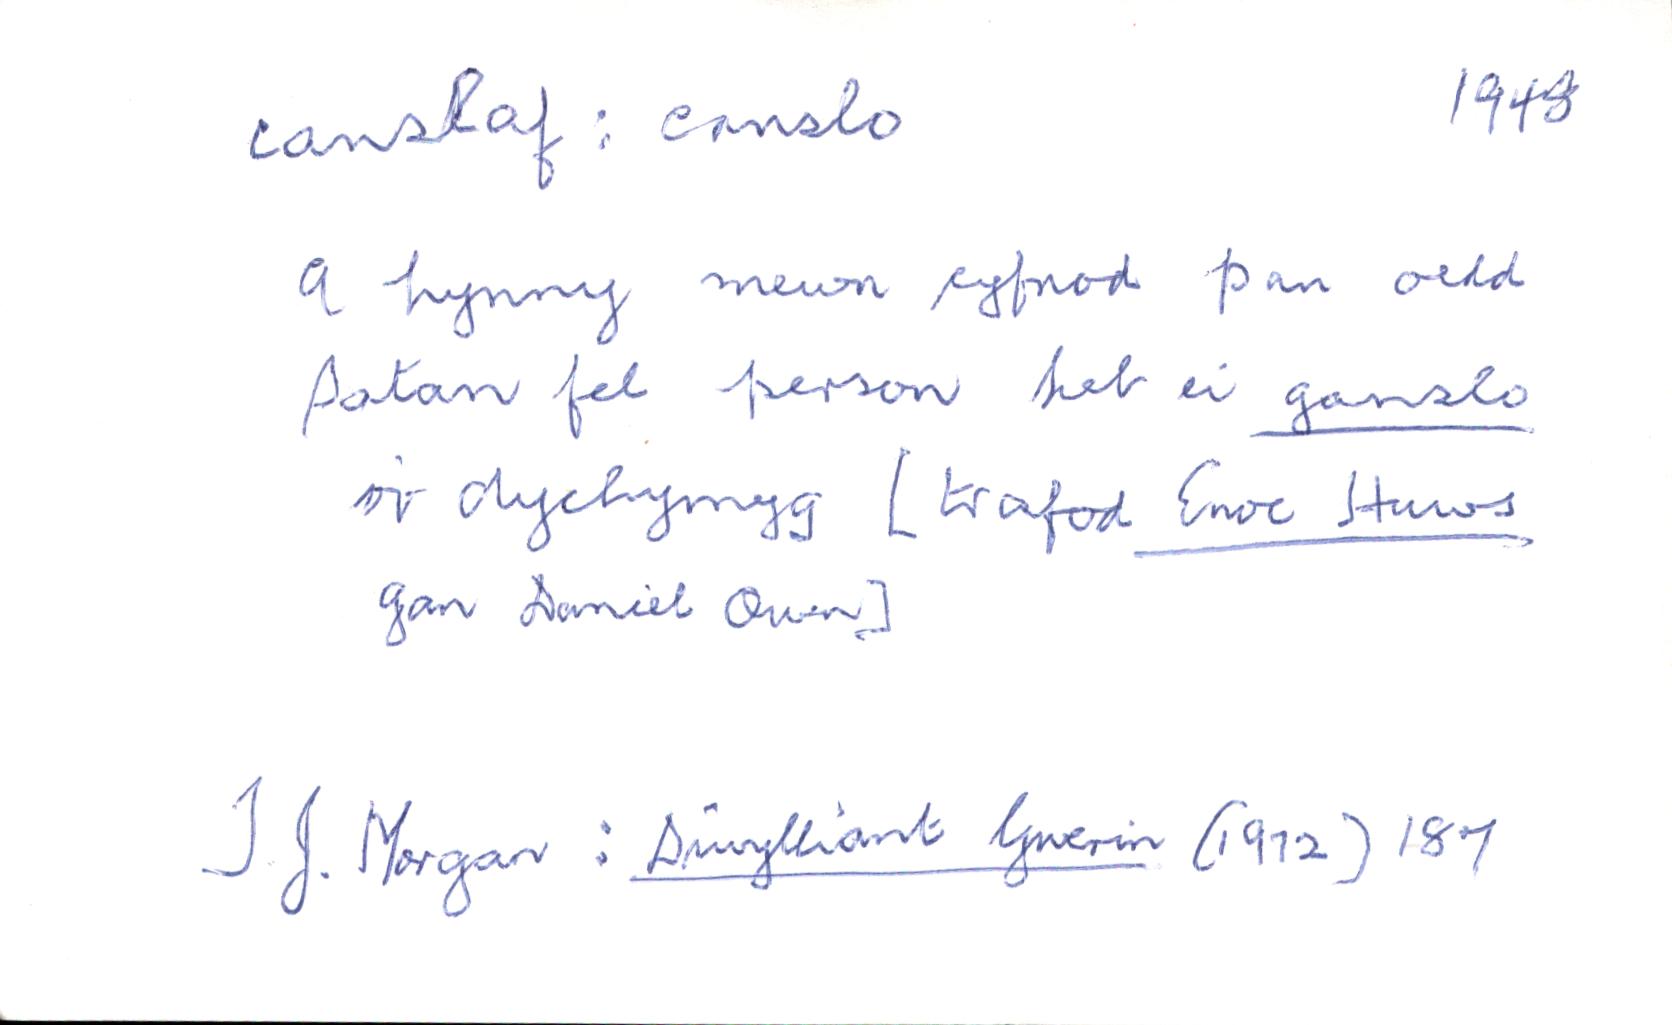 canslaf : canslo 1948
A hynny mewn cyfnod pan oedd
Satan fel person heb ei ganslo
o'r dychymyg [trafod Enoc Huws
gan Daniel Owen]
J. J. Morgan : Diwylliant Gwerin (1972) 187